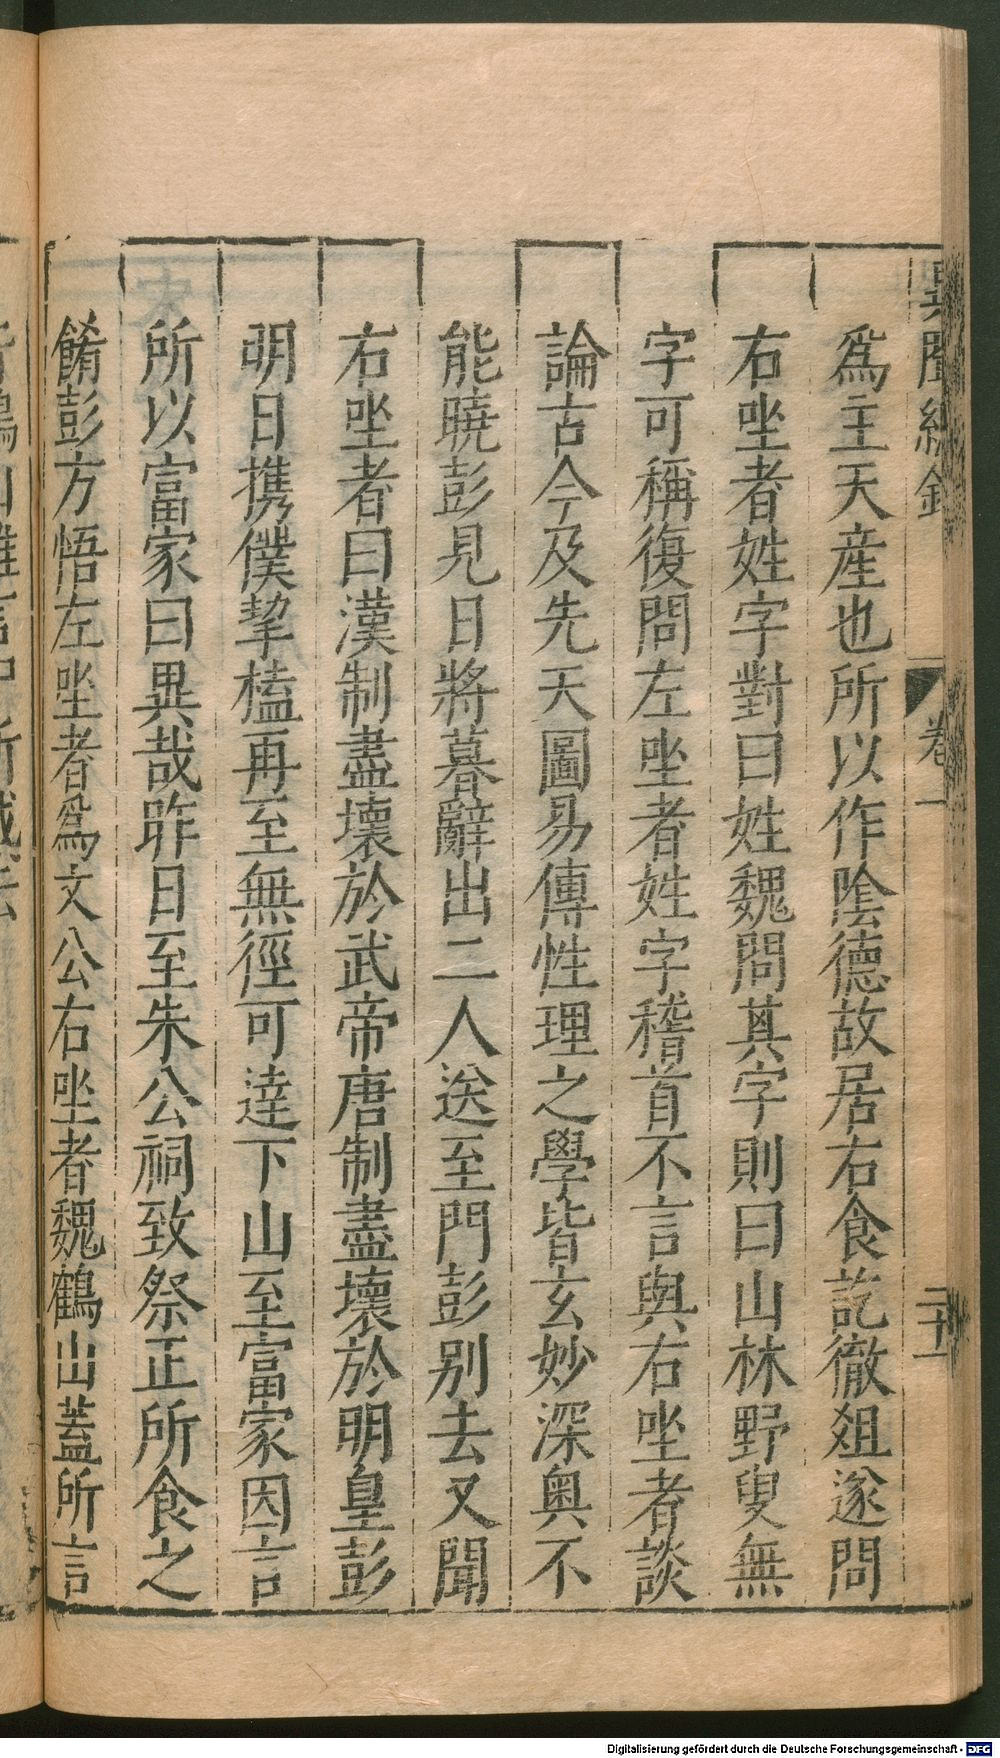 異聞總錄
卷一
二十一
爲主天産也所以作陰德故居右食訖徹俎遂問
右坐者姓字對曰姓魏問其字則曰山林野叟無
字可稱復問左坐者姓字稽首不言與右坐者談
論古今及先天圖易傳性理之學皆玄妙深奥不
能曉彭見日將暮辭出二人送至門彭别去又聞
右坐者曰漢制盡壞於武帝唐制盡壞於明皇彭
明日携僕挈榼再至無徑可逹下山至富家因言
所以富家曰異哉昨日至朱公祠致祭正所食之
餚彭方悟左坐者爲文公右坐者魏鶴山蓋所言
Digitalisierung gefördert durch die Deutsche Forschungsgemeinschaft - DFG